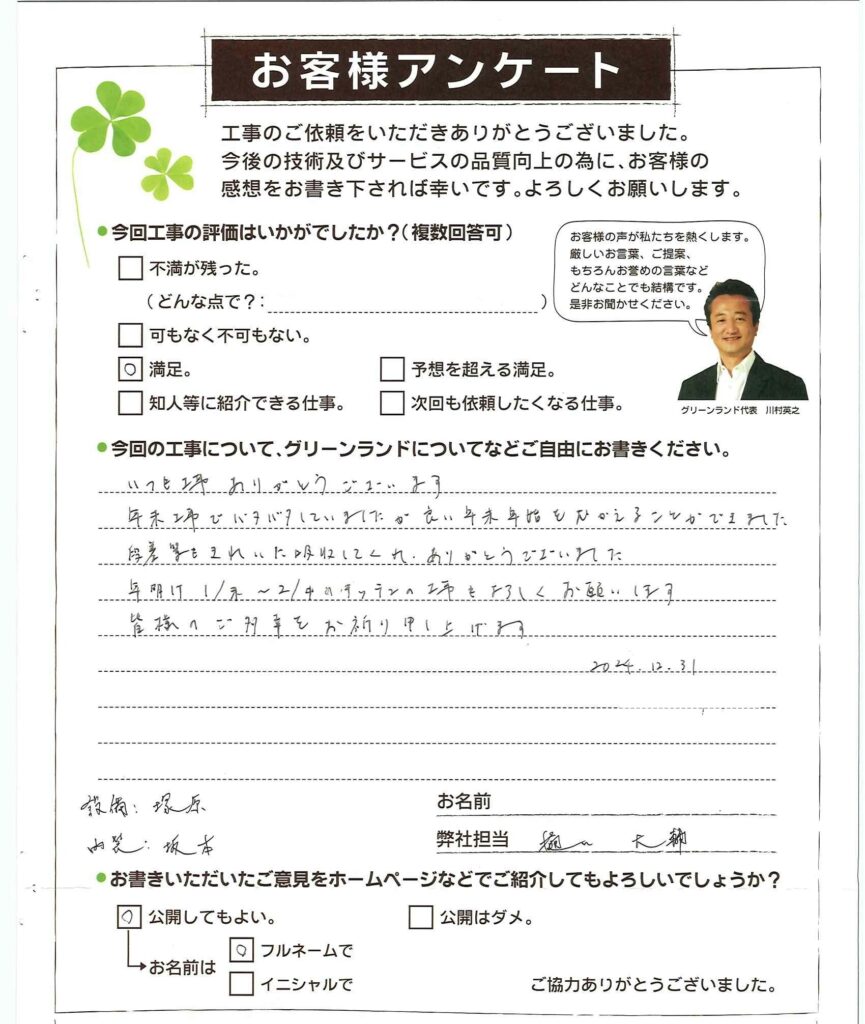 お客様アンケート
工事のご依頼をいただきありがとうございました。
今後の技術及びサービスの品質向上の為に、お客様の
感想をお書き下されば幸いです。よろしくお願いします。
今回工事の評価はいかがでしたか？（複数回答可）
不満が残った。
（どんな点で？：　）
可もなく不可もない。
満足。
予想を超える満足。
知人等に紹介できる仕事。
次回も依頼したくなる仕事。
お客様の声が私たちを熱くします。
厳しいお言葉、ご提案、
もちろんお誉めの言葉など
どんなことでも結構です。
是非お聞かせください。
グリーンランド代表　川村英之
今回の工事について、グリーンランドについてなどご自由にお書きください。
いつも工事 ありがとうございます
年末工事でバタバタしていましたが良い年末年始をむかえることができました
段差等もきれいに吸収してくれ、ありがとうございました
年明け 1/末～2/中のキッチンの工事もよろしくお願いします
皆様のご多幸をお祈り申し上げます
2024.12.31
設備：塚原
内装：坂本
お名前
弊社担当　大輔
お書きいただいたご意見をホームページなどでご紹介してもよろしいでしょうか？
公開してもよい。
公開はダメ。
お名前は
フルネームで
イニシャルで
ご協力ありがとうございました。